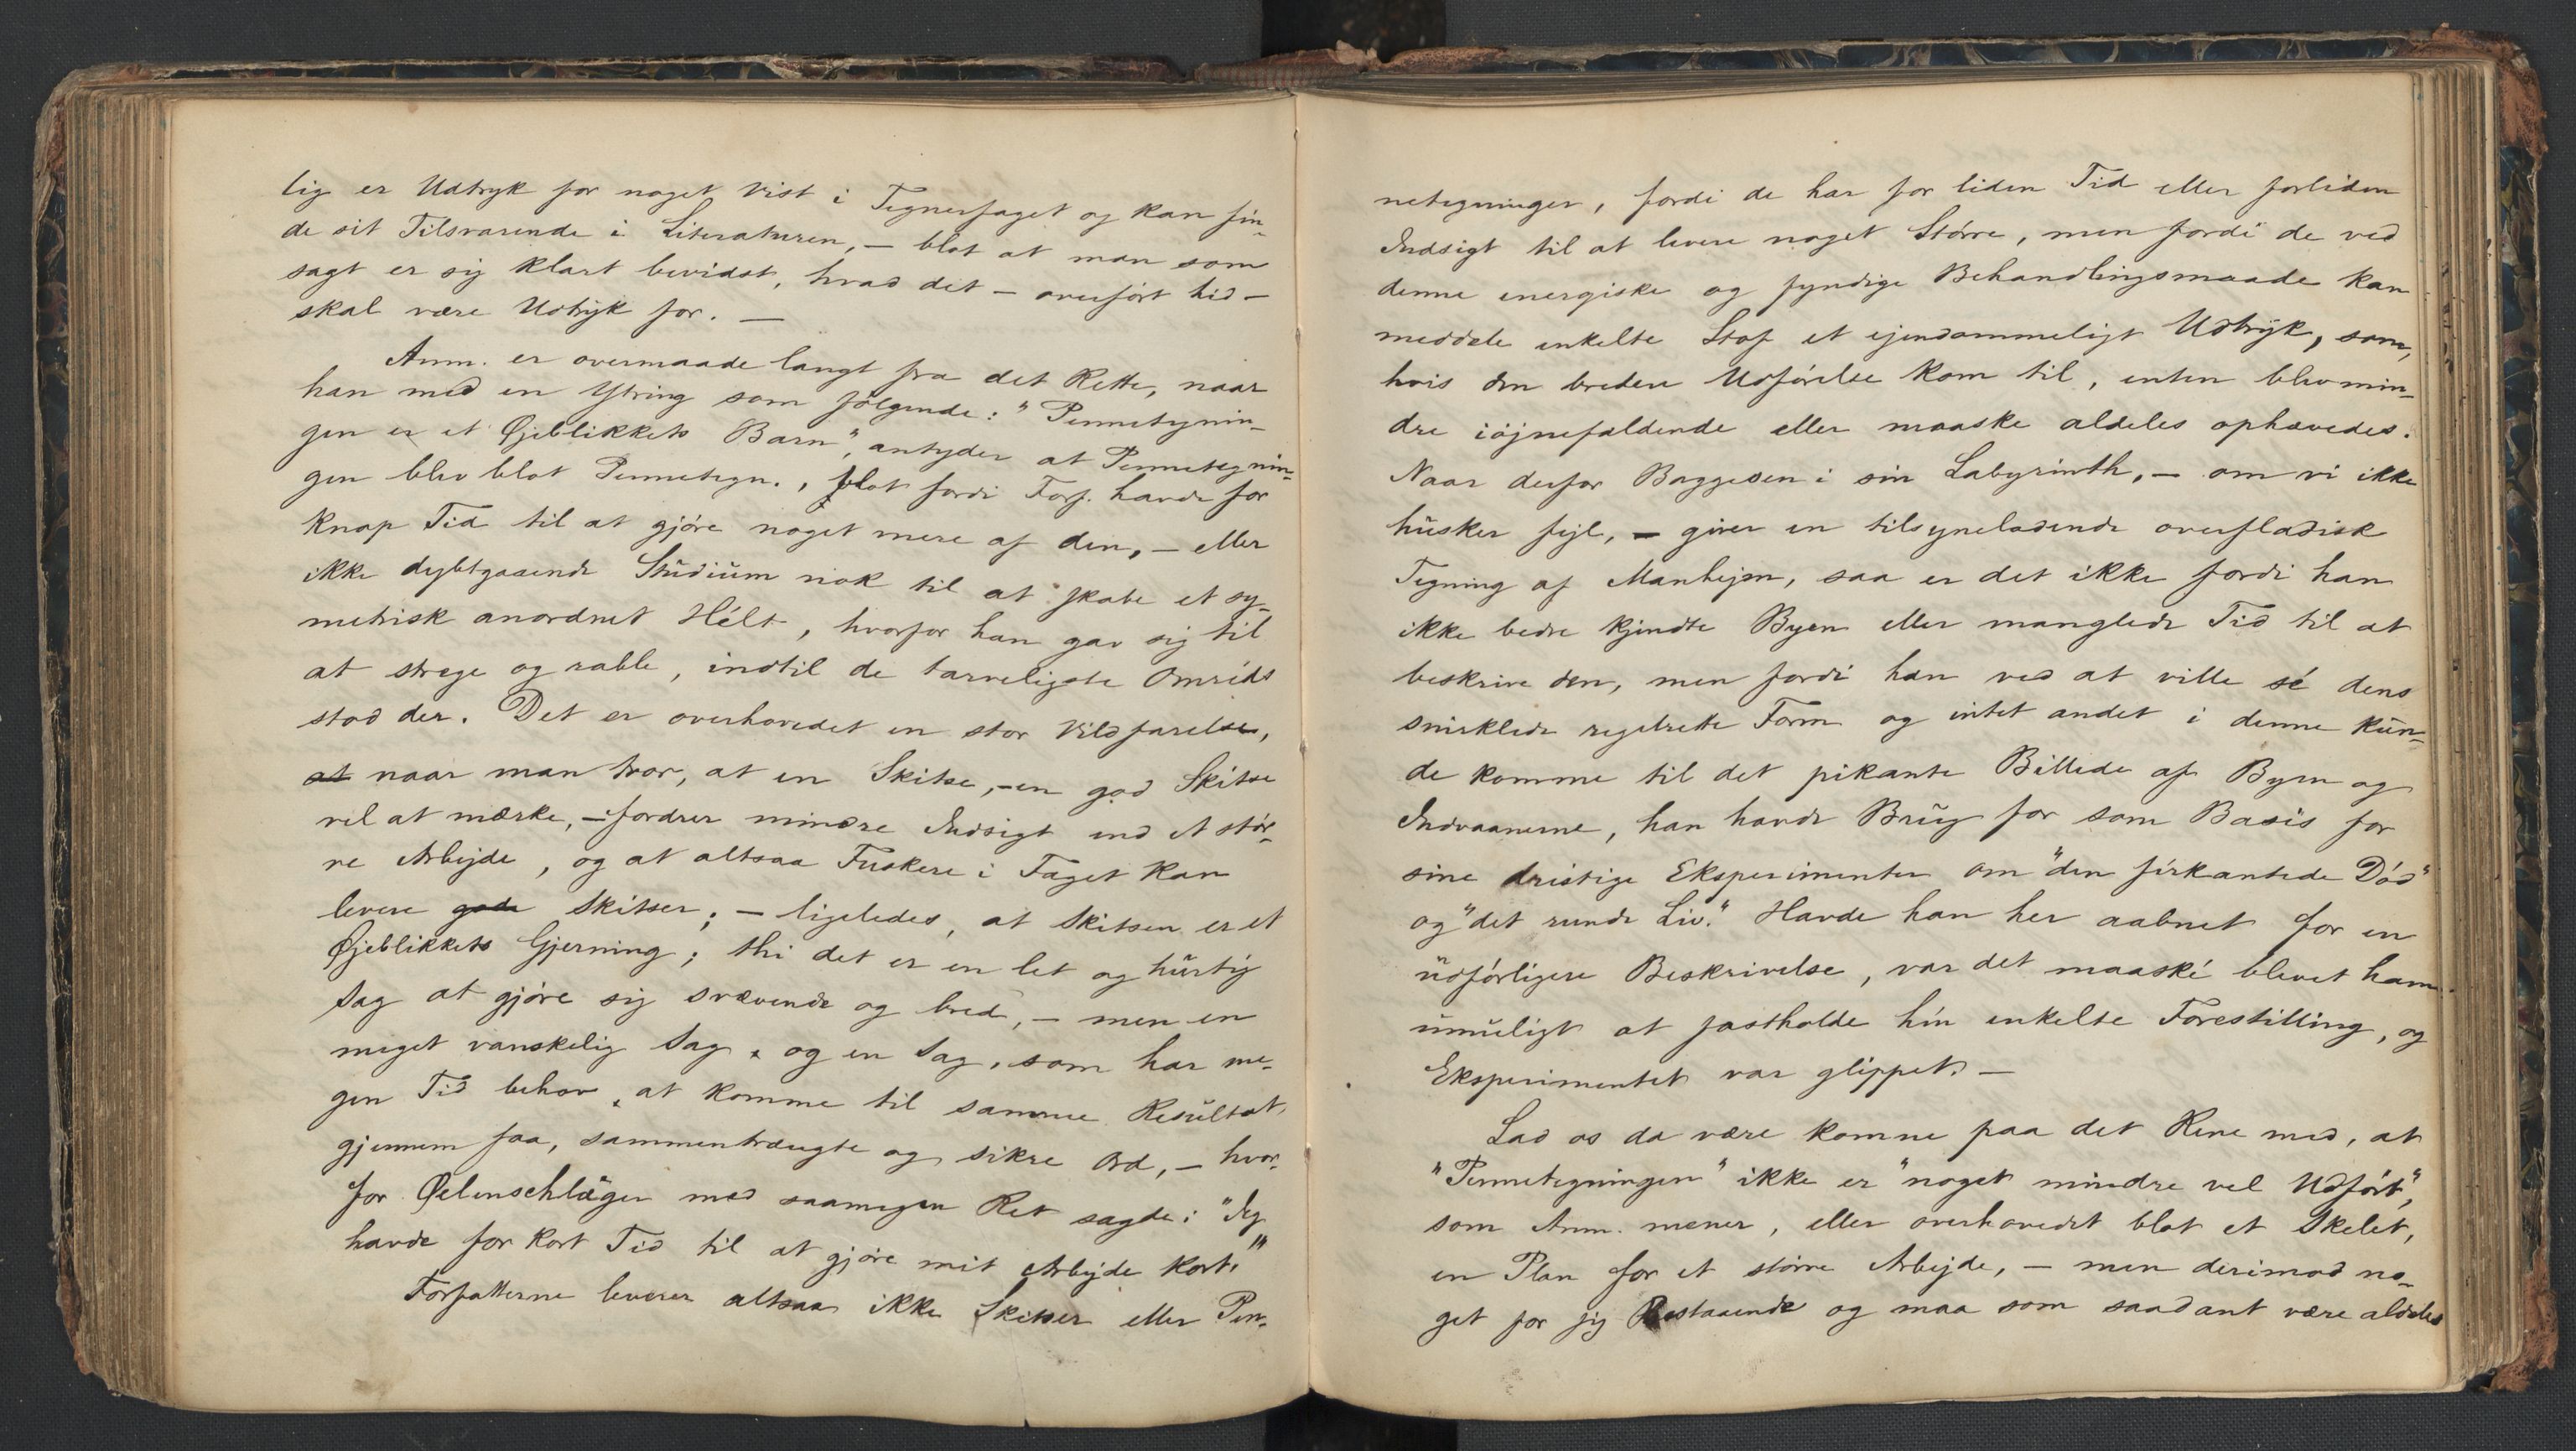 lig er Udtryk for noget vist i Tegnerfaget og kan fin-
de sit Tilsvarende i Literaturen, – blot at man som
sagt er sig klart bevidst, hvad det – overført hid –
skal være Udtryk for. –
Anm. er overmaade langt fra det Rette, naar
han med en Ytring som følgende: "Pennetegnin-
gen er et Øjeblikkets Barn", antyder at Pennetegnin-
gen blev blot Pennetegn., blot fordi Forf. havde for
knap Tid til at gjøre noget mere af den, – eller
ikke dybtgaaende Studium nok til at skabe et sy-
metrisk anordnet Hélt, hvorfor han gav sig til
at strege og rable, indtil de tarveligste Omrids
stod der. Det er overhovedet en stor Vildfarelse,
at naar man tror, at en Skitse, – en god Skitse
vel at mærke, – fordrer mindre Indsigt end et stør-
re Arbejde, og at altsaa Fuskere i Faget kan
levere gode Skitser; – ligeledes, at Skitsen er et
Øjeblikkets Gjerning; thi det er en let og hurtig
Sag at gjøre sig svævende og bred, – men en
meget vanskelig Sag, og en Sag, som har me-
gen Tid behov, at komme til samme Resultat
gjennem faa, sammentrængte og sikre Ord, – hvor-
for Øelenschläger med saamegen Ret sagde: "Jeg
havde for kort Tid til at gjøre mit Arbejde kort."
Forfatterne leverer altsaa ikke Skitser eller Pen-
netegninger, fordi de har for liden Tid eller forliden
Indsigt til at levere noget Større, men fordi de ved
denne energiske og fyndige Behandlingsmaade kan
meddele enkelte Stof et ejendommeligt Udtryk, som,
hvis den bredere Udførelse kom til, enten blev min-
dre iøjnefaldende eller maaske aldeles ophævedes.
Naar derfor Baggesen i sin Labyrinth, – om vi ikke
husker fejl, – giver en tilsyneladende overfladisk
Tegning af Manhejm, saa er det ikke fordi han
ikke bedre kjendte Byen eller manglede Tid til at
beskrive den, men fordi han ved at ville sé dens
snirklede regelrette Form og intet andet i denne kun-
de komme til det pikante Billede af Byen og
Indvaanerne, han havde Brug for som Basis for
sine dristige Eksperimenter om "den firkantede Død"
og "det runde Liv." Havde han her aabnet for en
udførligere Beskrivelse, var det maaské blevet ham
umueligt at fastholde hin enkelte Forestilling, og
Eksperimentet var glippet. –
Lad os da være komne paa det Rene med, at
"Pennetegningen" ikke er "noget mindre vel Udført",
som Anm. mener, eller overhovedet blot et Skelét,
en Plan for et større Arbejde, – men derimod no-
get for sig Bestaaende og maa som saadant være aldeles